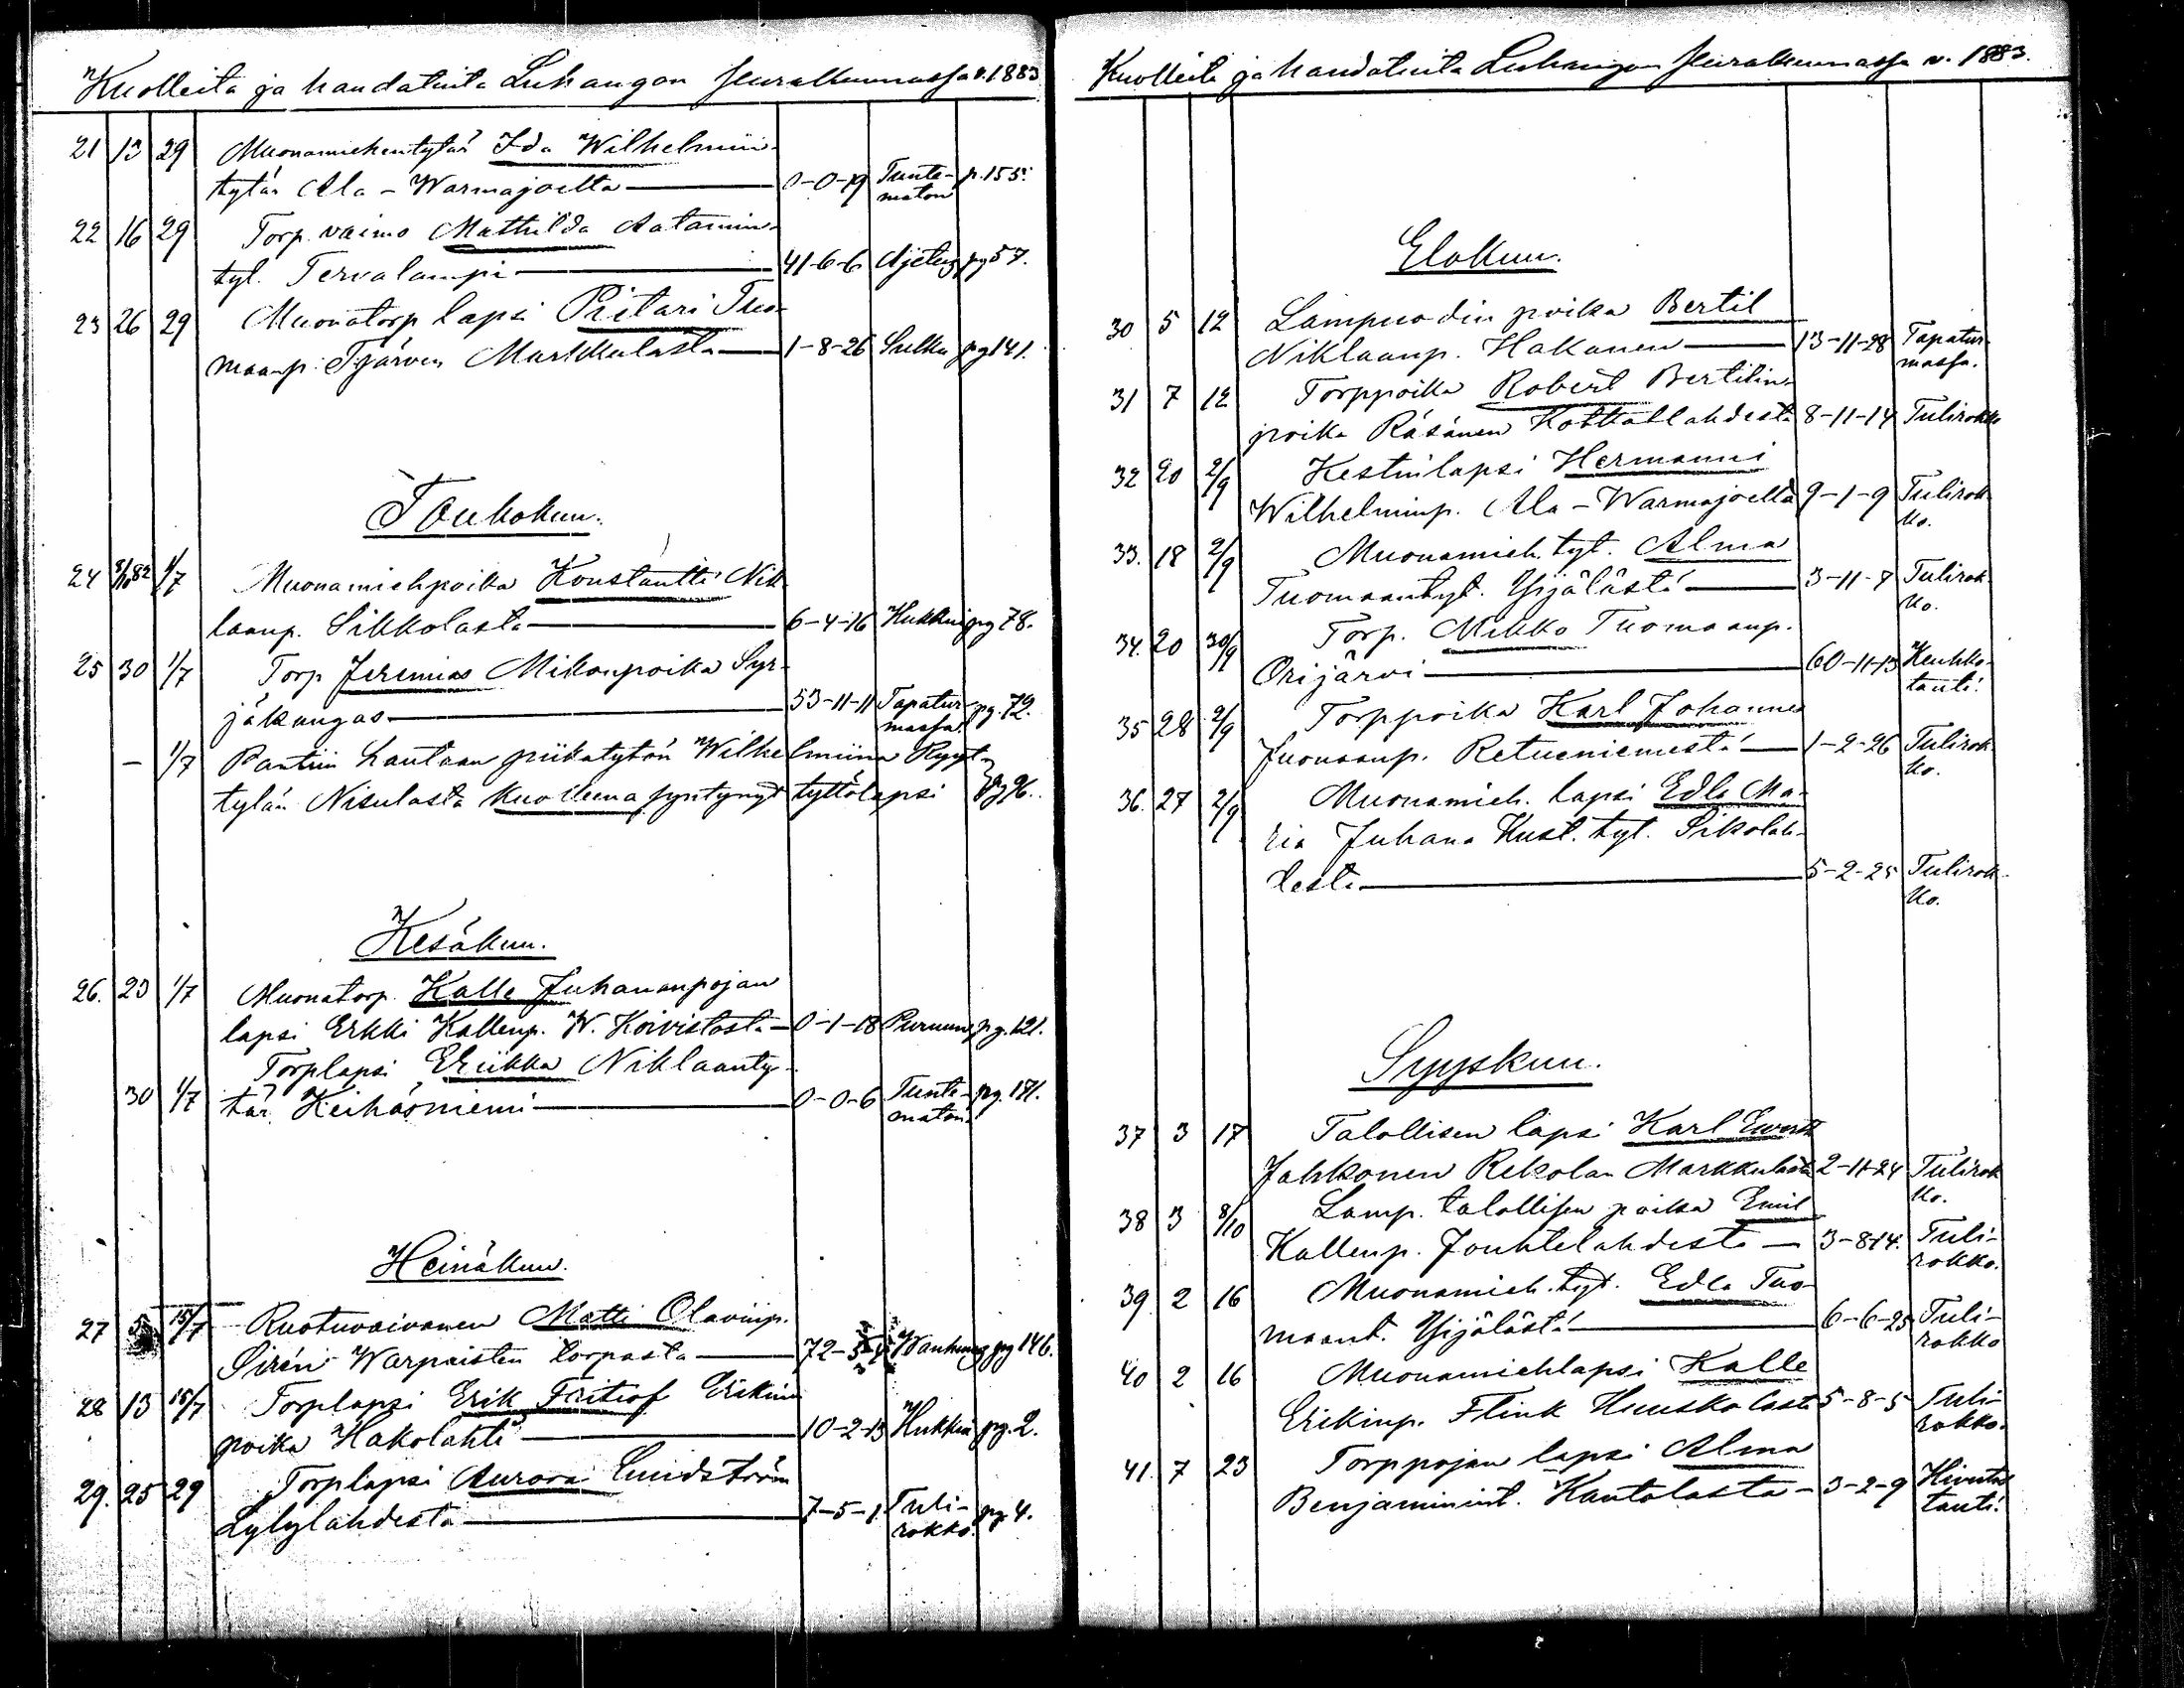 Kuolleita ja haudatuita Luhangan seurakunnassa v. 1883
21 13 29 Muonamiehentytär Ida Wilhelmiin-
tytär Ala-Warmajoelta 0-0-19 Tunte- p. 155.
maton
22 16 29 Torp. vaimo Mathilda Aatamin-
tyt. Tervalampi 41-6-6 Ajetus pg 57.
23 26 29 Muonatorp lapsi Pietari Tuo-
maanp. Markkulasta 1-8-26 Sulku pg 141.
Toukokuu.
24 1/7 Muonamiehpoika Konstantti Nik-
laanp. Sikkolasta 6-4-16 Hukkui pg 78.
25 30 1/7 Torp Jeremias Mikonpoika Syr-
jäkangas 53-11-11 Tapatur- pg. 72.
massa.
- 1/7 Pantiin hautaan piikatytön Wilhelmiina
tytär Nisulasta kuolleena syntynyt tyttölapsi pg 96.
Kesäkuu.
26. 23 1/7 Muonatorp. Kalle Juhananpojan
lapsi Erkki Kallenp. W. Koivistosta 0-1-18 pg. 121.
Torplapsi Eriikka Niklaanty-
30 1/7 tär Keihäsniemi 0-0-6 Tunte- pg. 171.
maton.
Heinäkuu.
27 5 15/7 Ruotuvaivanen Matti Olavinp.
Sirén Warpaisten torpasta 72- Wanhuus pg 146.
28 13 15/7 Torplapsi Erik Fritiof Erikin
poika Hakolahti 10-2-13 Hukkui pg. 2.
29. 25 29 Torplapsi Aurora Lindström
Lylylahdesta 7-5-1 Tuli- pg 4.
rokko.
Kuolleita ja haudatuita Luhangan seurakunnassa v. 1883.
Elokuu.
30 5 12 Lampuodin poika Bertil
Niklaanp. Hakanen 13-11-28 Tapatur-
massa.
31 7 12 Torppoika Robert Bertilin-
poika Räsänen Kottatlahdesta 8-11-14 Tulirokko
32 20 2/9 Kestinlapsi Hermanni
Wilhelminp. Ala-Warmajoelta 9-1-9 Tulirok-
ko.
33. 18 2/9 Muonamieh. tyt. Alma
Tuomaantyt. Ysijälästä 3-11-7 Tulirok-
ko.
34. 20 30/9 Torp. Mikko Tuomaanp.
Orijärvi 60-11-13 Keuhko-
tauti.
35 28 2/9 Torppoika Karl Johannes
Juonaanp. Retueniemestä 1-2-26 Tulirok-
ko.
36. 27 2/9 Muonamieh. lapsi Edla Ma-
ria Juhana Kust. tyt. Sikolah-
desta 5-2-25 Tulirok-
ko.
Syyskuu.
37 3 17 Talollisen lapsi Karl Ewert
Jahkonen Rekolan Markkulasta 2-11-24 Tulirok
ko.
38 3 8/10 Lamp. talollisen poika Emil
Kallenp. Jouhtelahdesta 3-8-14. Tuli-
rokko.
39. 2 16 Muonamieh. tyt. Edla Tuo-
maant. Ysijälästä 6-6-25 Tuli-
rokko
40 2 16 Muonamiehlapsi Kalle
Erikinp. Flink Huuskolasta 5-8-5 Tuli-
rokko.
41. 7 23 Torppojan lapsi Alma
Benjaminint. Kantolasta 3-2-9
tauti.